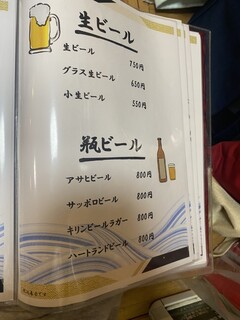 生ビール
生ビール 750円
グラス生ビール 650円
小生ビール 550円
瓶ビール
アサヒビール 800円
サッポロビール 800円
キリンビールラガー 800円
ハートランドビール 800円